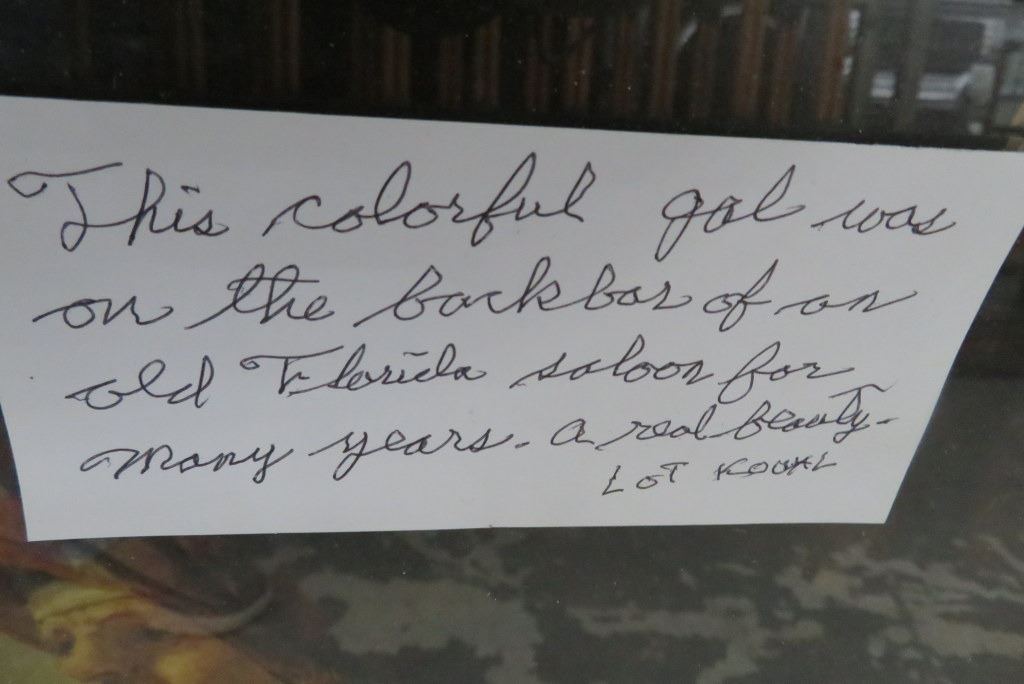 This colorful gal was
on the backbar of an
old Florida saloon for
many years. A real beauty.
LOT